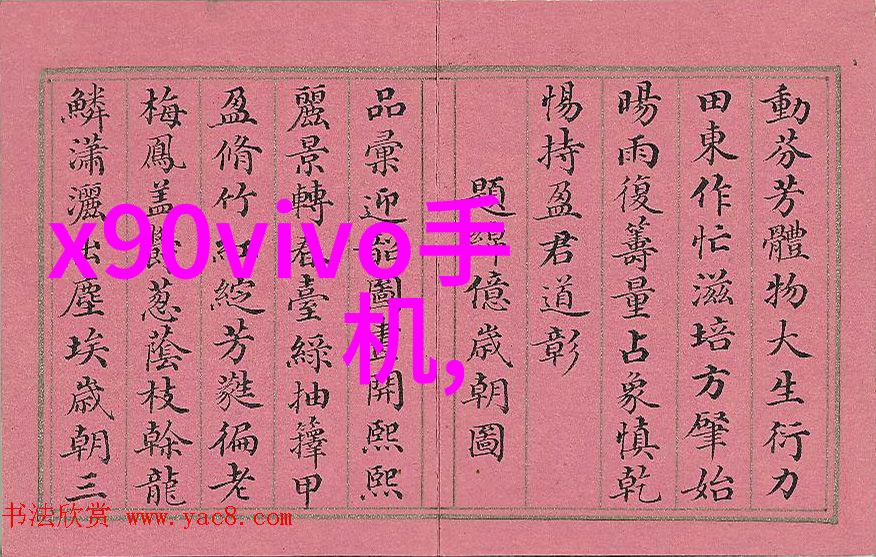 動芬芳體物大生衍力
田東作忙滋培方肇始
暘雨復籌量占象慎乾
惕持盈君道彰
題 億歲朝圖
品彙迎 圖 開熙熙
麗景轉 臺綠抽籜甲
盈脩竹紅綻芳蕤徧老
梅鳳蓋 葱蔭枝榦龍
鱗瀟灑出塵埃歲朝三
x90vivo手
机,
书法欣赏 www.yac8.com